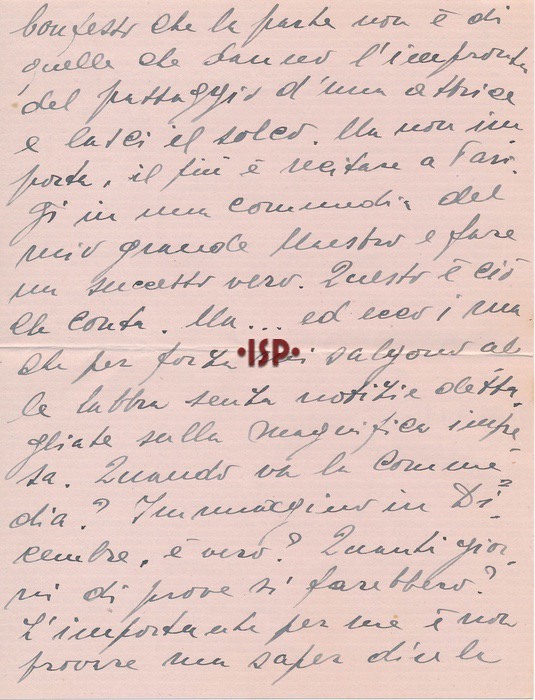 Confesso che la parte non è di
quelle che danno l'impronta
del passaggio d'una attrice
e lasci il solco. Ma non im
porta, il più è recitare a Pari
gi in una commedia del
mio grande Maestro e fare
un successo vero. Questo è ciò
che conta. Ma... ed ecco i ma
che per forza mi salgono al
•ISP•
le labbra senza notizie detta-
gliate sulla magnifica impre
sa. Quando va la Comme-
dia? Immagino in Di=
cembre, è vero? Quanti gior-
ni di prove si farebbero?
L'importante per me è non
provare ma saper dire la